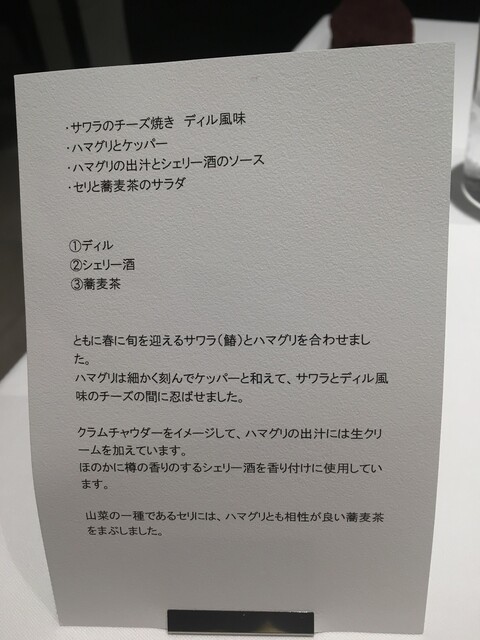 ・サワラのチーズ焼き ディル風味
・ハマグリとケッパー
・ハマグリの出汁とシェリー酒のソース
・セリと蕎麦茶のサラダ
①ディル
②シェリー酒
③蕎麦茶
ともに春に旬を迎えるサワラ(鰆)とハマグリを合わせまし
た。
ハマグリは細かく刻んでケッパーと和えて、サワラとディル風
味のチーズの間に忍ばせました。
クラムチャウダーをイメージして、ハマグリの出汁には生クリ
ームを加えています。
ほのかに樽の香りのするシェリー酒を香り付けに使用してい
ます。
山菜の一種であるセリには、ハマグリとも相性が良い蕎麦茶
をまぶしました。